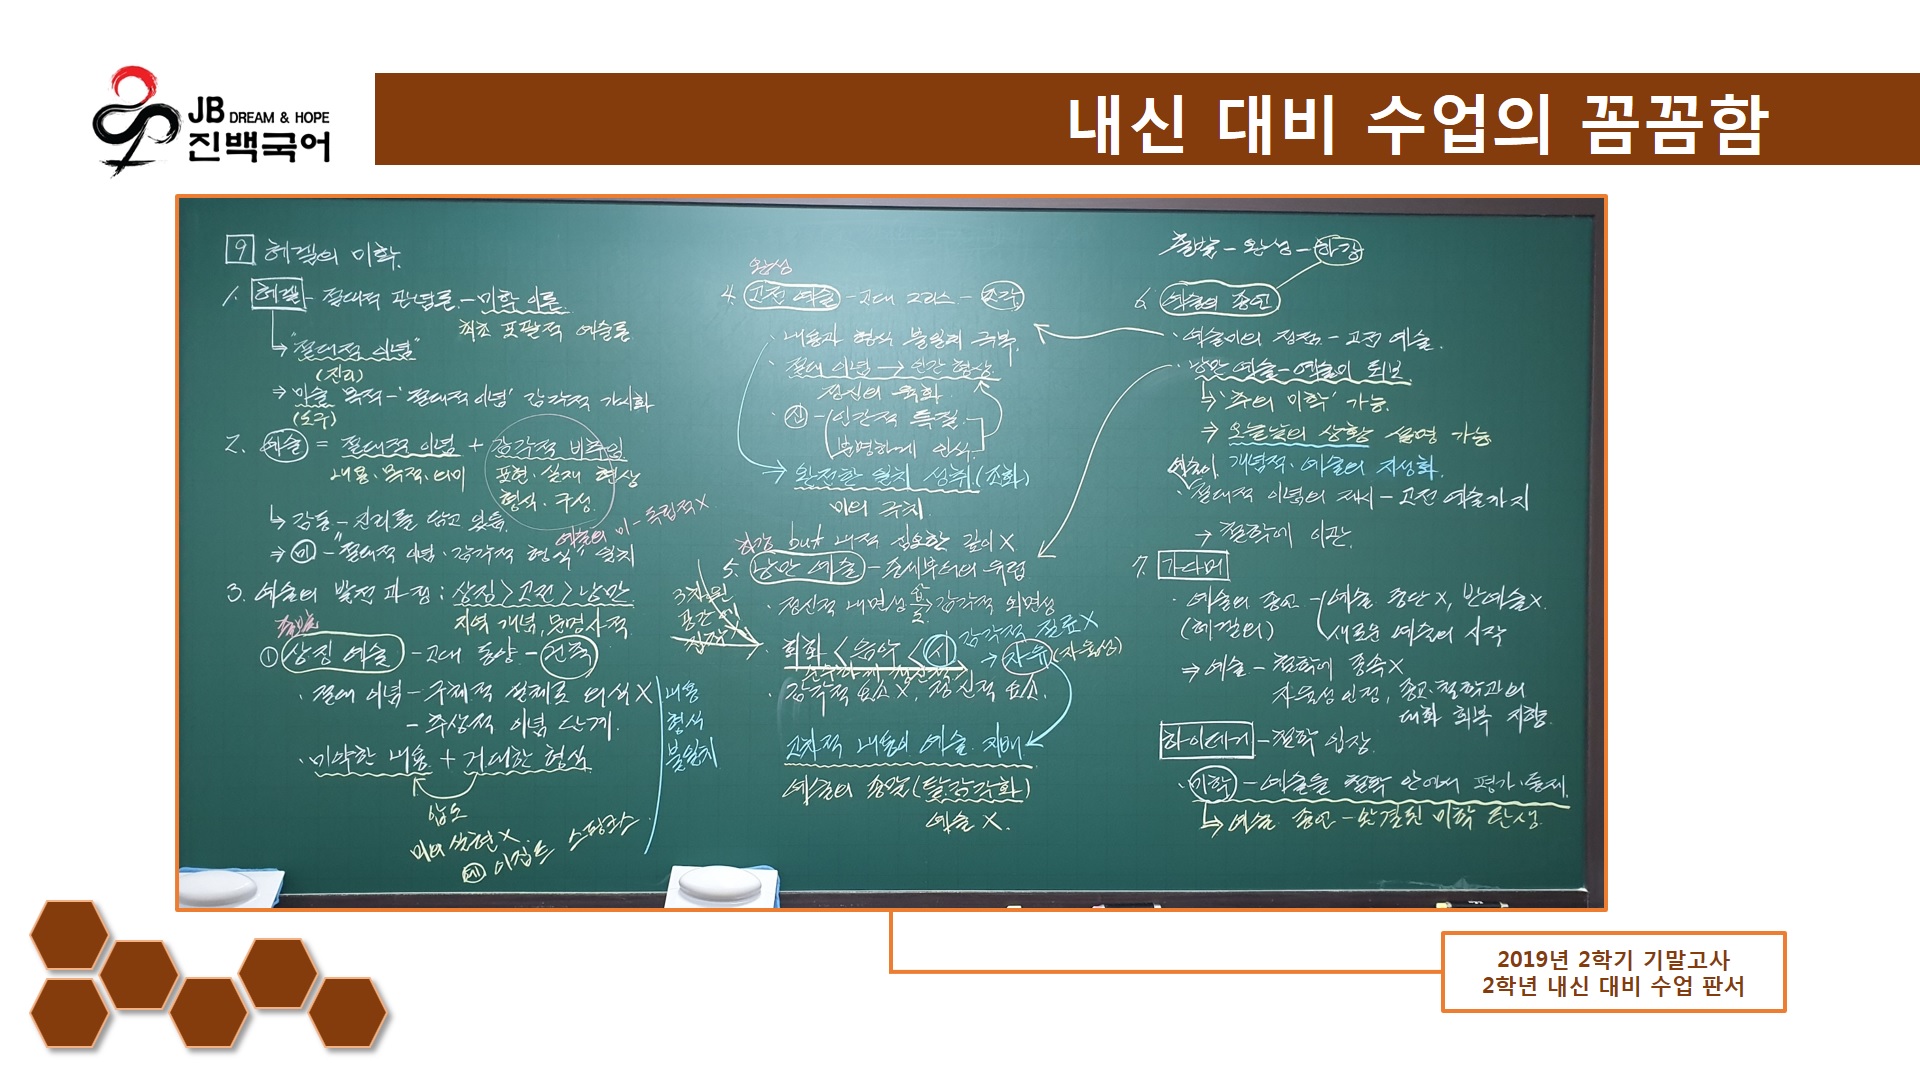 JB DREAM & HOPE
진백국어
내신 대비 수업의 꼼꼼함
9 헤겔의 미학.
1. 헤겔 - 절대적 관념론 - 미학 이론.
최초 포괄적 예술론
"절대적 이념"
(진리)
⇒ 미술 목적 - '절대적 이념' 감각적 가시화
(도구)
2. 예술 = 절대적 이념 + 감각적
내용·목적·의미 표현·실재 형상
형식·구성
↳ 감동 - 진리를 담고 있음.
예술의 미 - 독립적 X
⇒ 미 - "절대적 이념·감각적 형식" 일치
3. 예술의 발전 과정 : 상징 > 고전 > 낭만
지역 개념,
출발
① 상징 예술 - 고대 동양 - 건축
· 절대 이념 - 구체적 실체로 의식 X
- 추상적 이념 단계.
· 미약한 내용 + 거대한 형식
내용
형식
불일치
압도
미의 실현 X
예 이집트 스핑크스
완성
4. 고전 예술 - 고대 그리스 - 조각
· 내용과 형식 불일치 극복.
· 절대 이념 → 인간 형상
정신의 육화
· 신 - 인간적 특질.
분명하게 인식.
→ 완전한 일치 성취 (조화)
미의 극치.
하강 but 내적 심오한 깊이 X
5. 낭만 예술 - 중세부터의 유럽
· 정신적 내면성 > 감각적 외면성
3차원
공간
감각적 질료 X
회화 < 음악 < 시 → 자유 (자율성)
· 감각적 요소 X, 정신적 요소.
고차적 내용이 예술 지배
예술의 종말 (탈감각화)
예술 X.
출발 - 완성 - 하강
6. 예술의 종언
· 예술미의 정점 - 고전 예술.
· 낭만 예술 - 예술미 퇴보
↳ '추의 미학' 가능.
⇒ 오늘날의 상황 설명 가능
개념적·예술의 지성화.
· 절대적 이념의 제시 - 고전 예술까지
→ 철학에 이관.
7. 가다머
· 예술의 종언 - 예술 중단 X, 반예술 X.
(헤겔의) 새로운 예술의 시작
⇒ 예술 - 철학에 종속 X
자율성 인정, 종교·철학과의
대화 회복 지향.
하이데거 - 철학 입장.
· 미학 - 예술을 철학 안에서 평가·통제.
↳ 예술 종언 - 완결된 미학 탄생.
2019년 2학기 기말고사
2학년 내신 대비 수업 판서